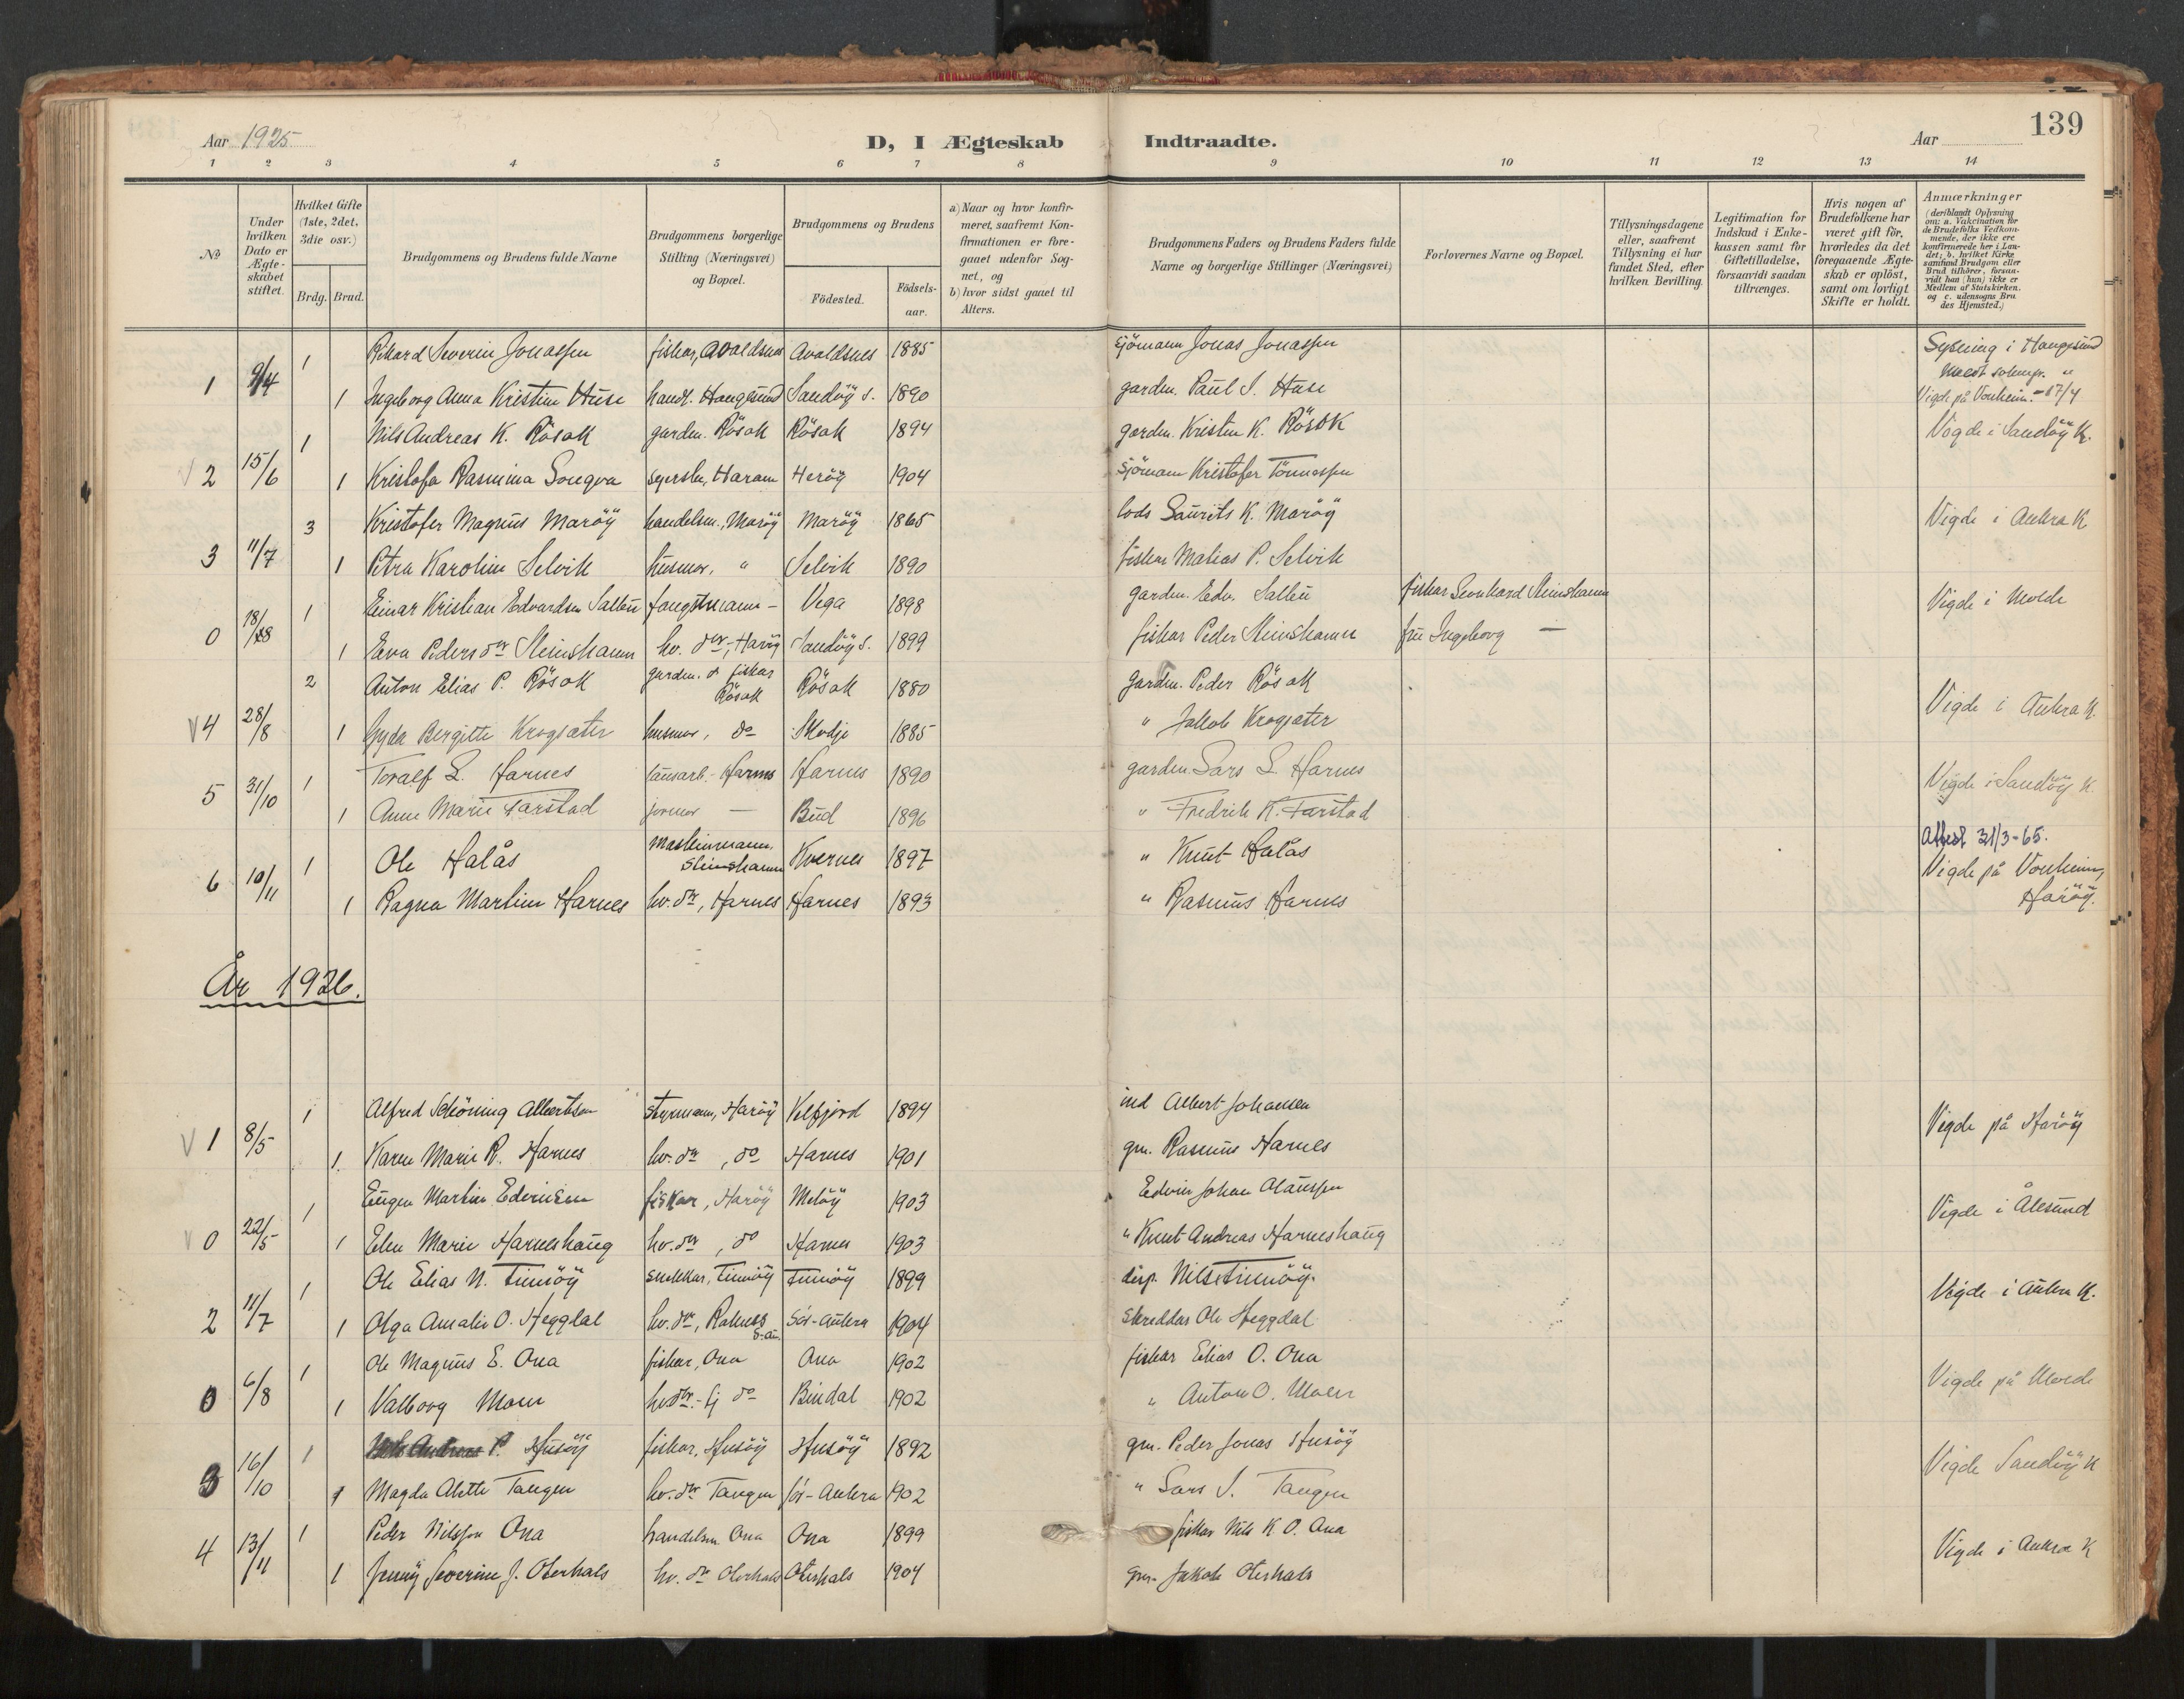 139
Aar 1925 D, I Ægteskab Indtraadte. Aar
1 2 3 4 5 6 7 8 9 10 11 12 13 14
№
Under hvilken Dato er Ægteskabet stiftet.
Hvilket Gifte (1ste, 2det, 3die osv.)
Brdg. Brud.
Brudgommens og Brudens fulde Navne
Brudgommens borgerlige Stilling (Næringsvei) og Bopæl.
Brudgommens og Brudens
Födested.
Födsels-aar.
a) Naar og hvor konfir-
meret, saafremt Kon-
firmationen er fore-
gaaet udenfor Sog-
net, og
b) hvor sidst gaaet til
Alters.
Brudgommens Faders og Brudens Faders fulde
Navne og borgerlige Stillinger (Næringsvei)
Forlovernes Navne og Bopæl.
Tillysningsdagene
eller, saafremt
Tillysning ei har
fundet Sted, efter
hvilken Bevilling.
Legitimation for
Indskud i Enke-
kassen samt for
Giftetilladelse,
forsaavidt saadan
tiltrænges.
Hvis nogen af
Brudefolkene har
været gift för,
hvorledes da det
foregaaende Ægte-
skab er oplöst,
samt om lovligt
Skifte er holdt.
Anmærkninger
(deriblandt Oplysning
om: a. Vakcination for
de Brudefolks Vedkom-
mende, der ikke ere
konfirmerede her i Lan-
det; b. hvilket Kirke-
samfund Brudgom eller
Brud tilhörer, forsaa-
vidt han (hun) ikke er
Medlem af Statskirken.
og c. udensogns Bru-
des Hjemsted.)
1 Rikard Severin Jonassen fiskar, Avaldsnes Avaldsnes 1885 sjömann Jonas Jonassen i Haugesund
1 9/4 1 Ingeborg Anna Kristine Huse handl. Haugesund Sandöy s. 1890 garden. Paul I. Huse Vigde på Vonheim - 17/4
1 Nils Andreas K. Rösok garden. Rösok Rösok 1894 garden. Kristen K. Rösok Vigde i Sandöy K.
V 2 15/6 1 Kristofa Rasmina Longva Haram Heröy 1904 sjömann Kristofer Tönnessen
3 Kristofer Magnus Maröy handelsm., Maröy Maröy 1865 lods Laurits K. Maröy Vigde i Aukra K
3 11/7 1 Petra Karoline Selvik husmor, " Selvik 1890 fiskar Matias P. Selvik
1 Einar Kristian Edvardsen Salten fangstmann - Vega 1898 garden. Edv. Salten fiskar Leonhard Steinshamn Vigde i Molde
0 18/8 1 Eva Pedersdtr Steinshamn hv. dtr, Haröy Sandöy s. 1899 fiskar Peder Steinshamn fru Ingeborg —
2 Anton Elias P. Rösok garden. & fiskar Rösok Rösok 1880 garden. Peder Rösok Vigde i Aukra K.
V 4 28/8 1 Gyda Bergitte Krogsæter husmor, do Skodje 1885 " Jakob Krogsæter
1 Toralf L. Harnes lausarb. - Harnes Harnes 1890 garden. Lars L. Harnes Vigde i Sandöy K.
5 31/10 1 Anne Marie Farstad — Bud 1896 " Fredrik K. Farstad
Attest 31/3-65.
1 Ole Halås Maskinmann, Steinshamn Kvernes 1897 " Knut Halås Vigde på Vonheim, Haröy.
6 10/11 1 Ragna Martine Harnes hv. dtr, Harnes Harnes 1893 " Rasmus Harnes
År 1926.
1 Alfred Schöning Albertsen styrmann, Haröy Velfjord 1894 ind Albert Johansen Vigde på Haröy
V 1 8/5 1. Karen Marie R. Harnes hv. dtr, do Harnes 1901 gm. Rasmus Harnes
1 Eugen Martin Edvinsen fiskar, Haröy Melöy 1903 Edvin Johan Olaussen Vigde i Ålesund
V 0 22/5 1 Elen Marie Harneshaug hv. dtr, do Harnes 1903 " Knut Andreas Harneshaug
1 Ole Elias N. Finnöy snekkar, Finnöy Finnöy 1899 disp. Nils Finnöy. Vigde i Aukra K.
2 11/7 1 Olga Amalie O. Heggdal hv. dtr, S-au. Sör-Aukra 1904 skreddar Ole Heggdal
1 Ole Magnus E. Ona fiskar, Ona Ona 1902 fiskar Elias O. Ona Vigde på Molde
0 6/8 1 Valborg Moen hv dtr. - do Bindal 1902 " Anton O. Moen
1 P. Husöy fiskar, Husöy Husöy 1892 gm. Peder Jonas Husöy Vigde Sandöy K
3 16/10 1 Magda Alette Tangen hv. dtr Tangen Sör-Aukra 1902 " Lars J. Tangen
1 Peder Nilsson Ona handelsm. Ona Ona 1899 fiskar Nils K. O. Ona Vigde i Aukra K
4 13/11 1 Jenny Severine J. Oterhals hv. dtr Oterhals Oterhals 1904 gm. Jakob Oterhals